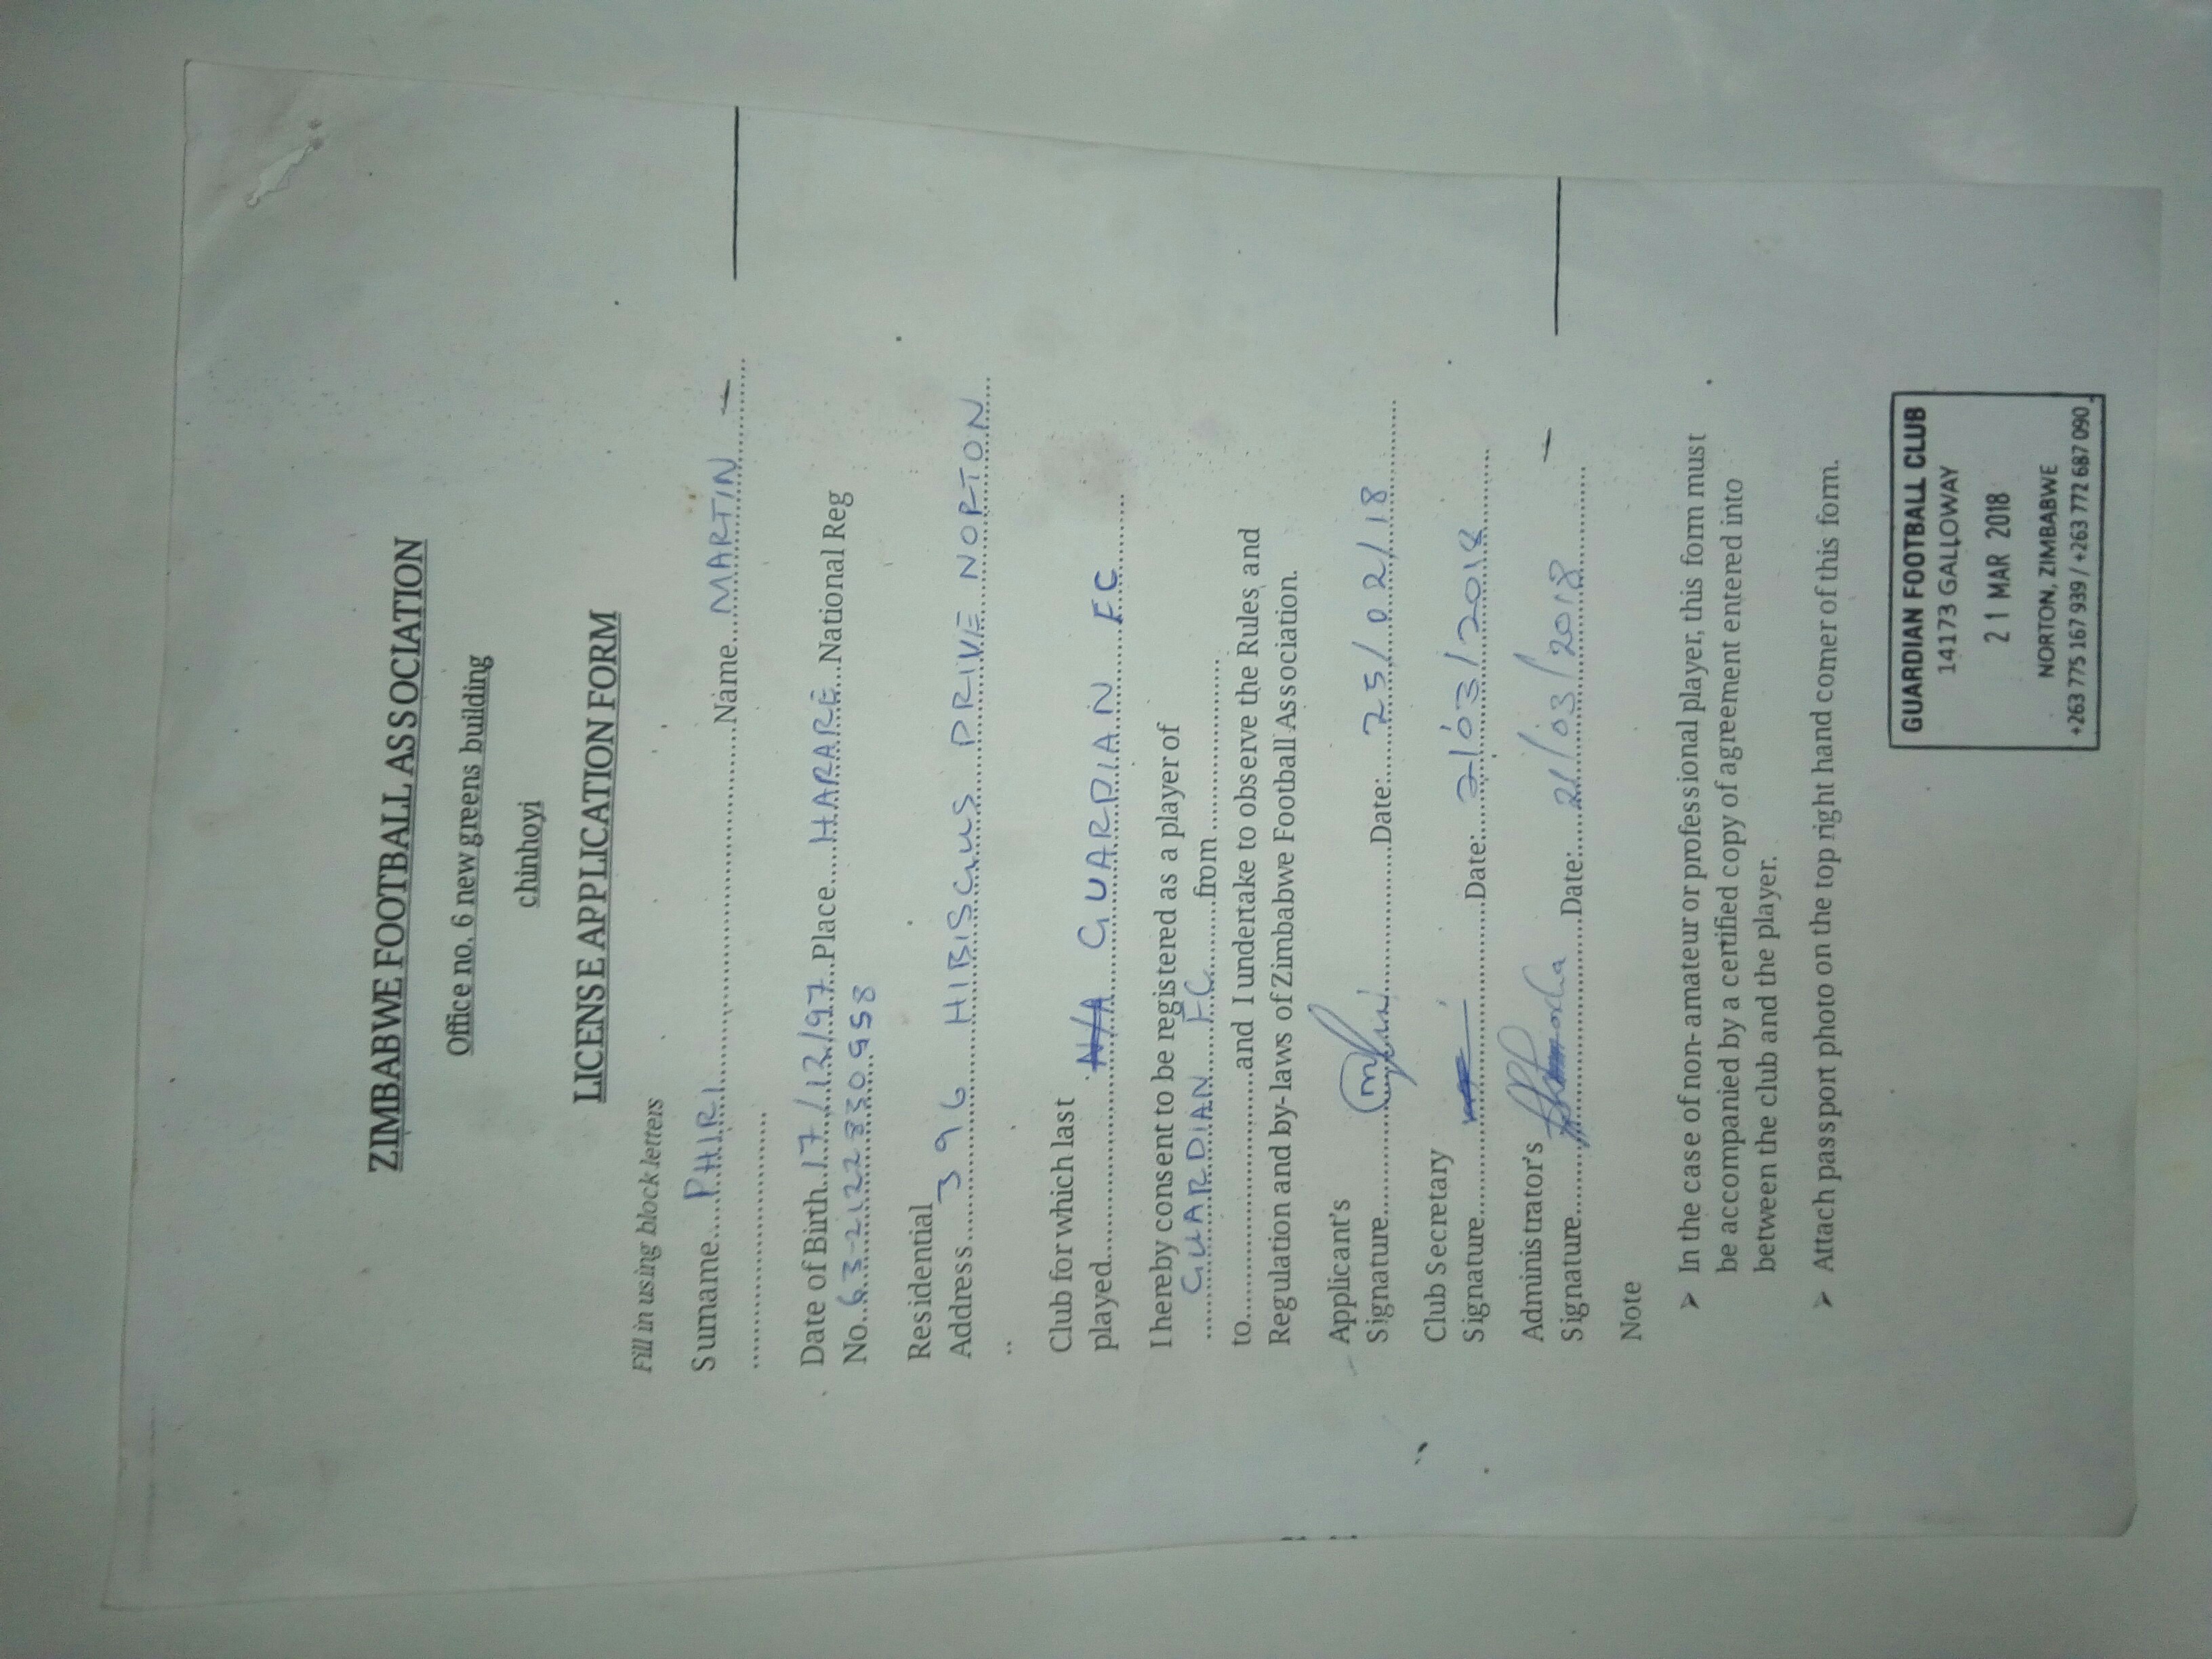 ZIMBABWE FOOTBALL ASSOCIATION
Office no. 6 new greens building
chinhoyi
LICENSE APPLICATION FORM
Fill in using block letters
Surname....PHIRI..........Name...MARTIN.......
..........................
Date of Birth..17/12/97..Place....HARARE..National Reg
No..63-2122830958
Residential
Address....396 HIBISCUS DRIVE NORTON
..
Club for which last
played..........N/A GUARDIAN F.C.......
I hereby consent to be registered as a player of
......GUARDIAN FC........from....................
to..........................and I undertake to observe the Rules, and
Regulation and by-laws of Zimbabwe Football Association.
Applicant's
Signature....................Date:....25/02/18.......
Club Secretary
Signature....................Date:....21/03/2018.......
Administrator's
Signature....................Date:....21/03/2018.......
Note
➤ In the case of non-amateur or professional player, this form must
be accompanied by a certified copy of agreement entered into
between the club and the player.
➤ Attach passport photo on the top right hand corner of this form.
GUARDIAN FOOTBALL CLUB
14173 GALLOWAY
21 MAR 2018
NORTON, ZIMBABWE
+263 775 167 939 / +263 772 687 090